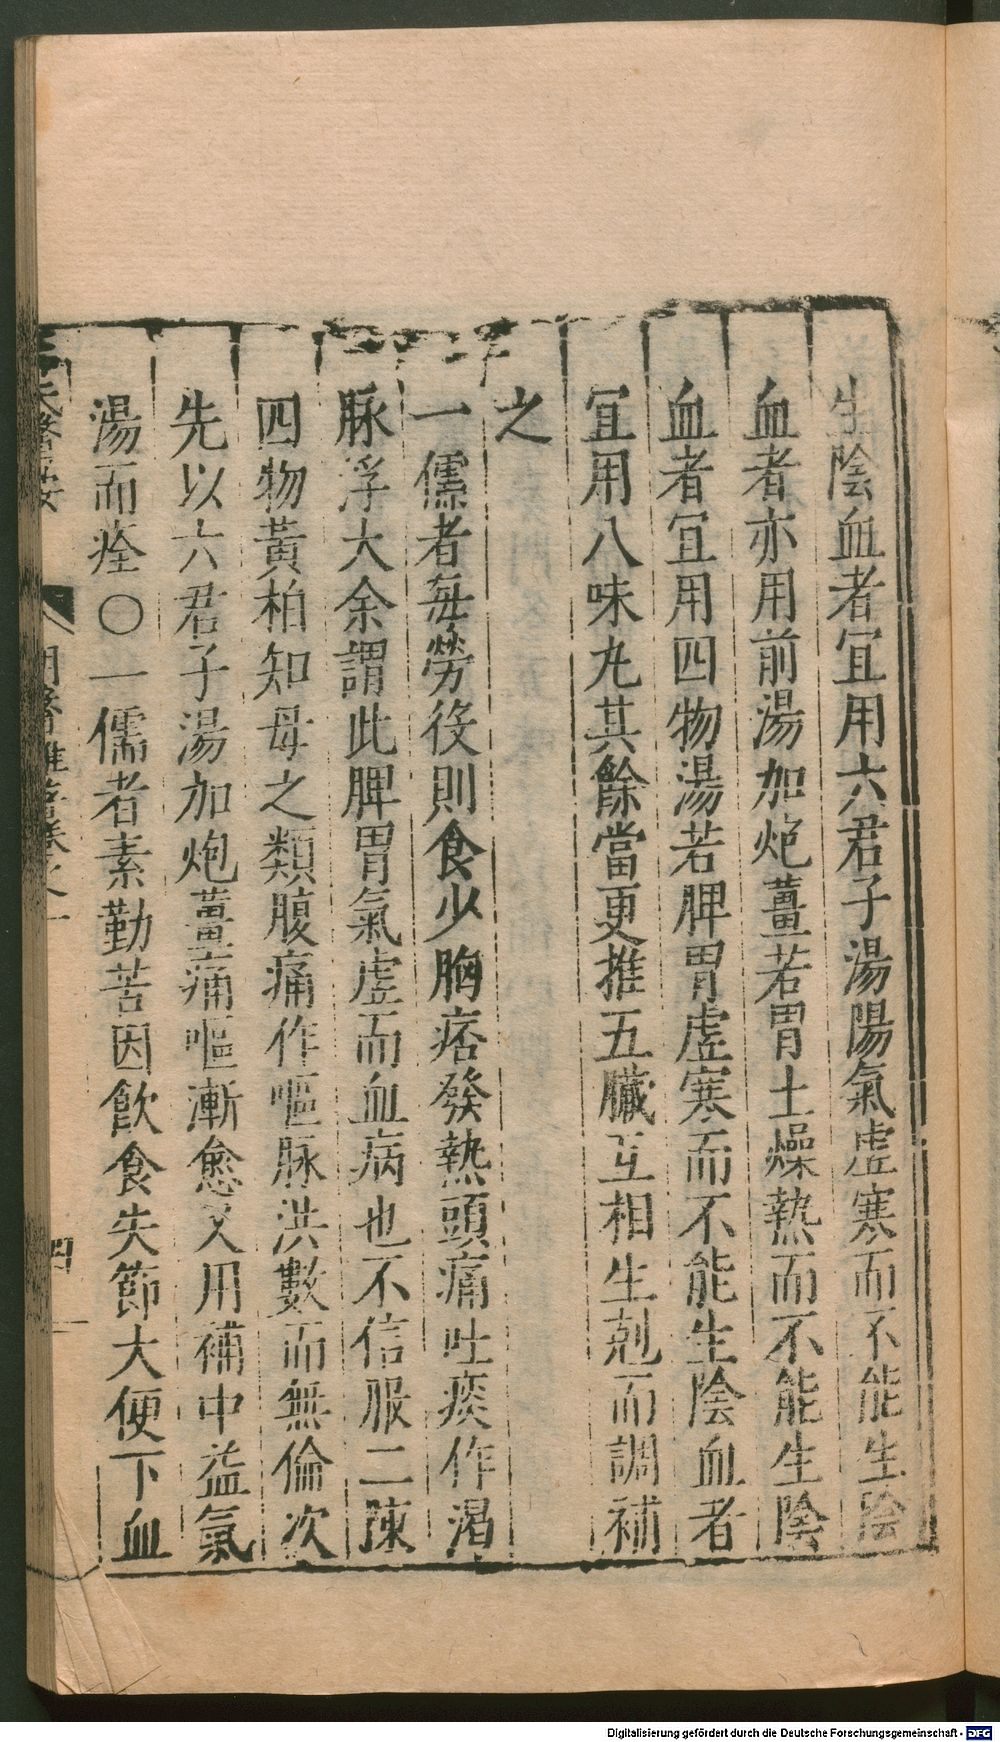 生陰血者宜用六君子湯陽氣虛寒而不能生陰
血者亦用前湯加炮薑若胃土燥熱而不能生陰
血者宜用四物湯若脾胃虛寒而不能生陰血者
宜用八味丸其餘當更推五臟互相生剋而調補
之
一儒者每勞役則食少胸痞發熱頭痛吐痰作渴
脉浮大余謂此脾胃氣虛而血病也不信服二陳
四物黃柏知母之類腹痛作嘔脉洪數而無倫次
先以六君子湯加炮薑痛嘔漸愈又用補中益氣
湯而痊〇一儒者素勤苦因飲食失節大便下血
明醫雜著卷之一
四
Digitalisierung gefördert durch die Deutsche Forschungsgemeinschaft - DFG